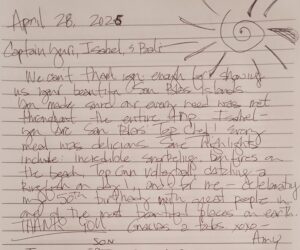 April 28, 2025
Captain Yuri, Isabel, & Badi
We can't thank you enough for showing
us your beautiful San Blas Islands
You made sure our every need was met
throughout the entire trip. Isabel -
you are San Blas' "Top Chef". Every
meal was delicious. Some highlights
include: incredible snorkeling, bonfires on
the beach, Top Gun volleyball, catching a
on day 1, and for me - celebrating
my 50th birthday with great people in
one of the most beautiful places on earth.
THANK YOU! xoxo -
SON Amy